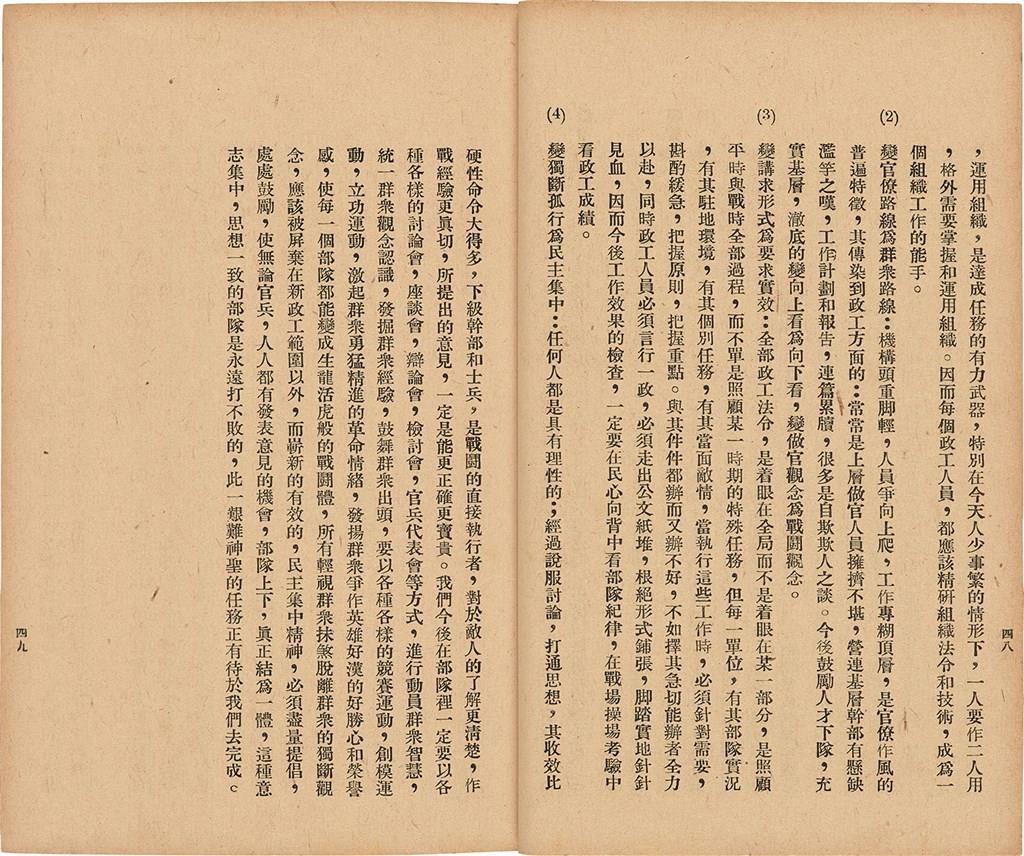 ，運用組織，是達成任務的有力武器，特別在今天人少事繁的情形下，一人要作二人用
，格外需要掌握和運用組織。因而每個政工人員，都應該精研組織法令和技術，成爲一
個組織工作的能手。
(2) 變官僚路線爲群衆路線：機構頭重脚輕，人員爭向上爬，工作專糊頂層，是官僚作風的
普遍特徵，其傳染到政工方面的：常常是上層做官人員擁擠不堪，營連基層幹部有懸缺
濫竽之嘆，工作計劃和報告，連篇累牘，很多是自欺欺人之談。今後鼓勵人才下隊，充
實基層，澈底的變向上看爲向下看，變做官觀念爲戰鬪觀念。
(3) 變講求形式爲要求實效：全部政工法令，是着眼在全局而不是着眼在某一部分，是照顧
平時與戰時全部過程，而不單是照顧某一時期的特殊任務，但每一單位，有其部隊實況
，有其駐地環境，有其個別任務，有其當面敵情，當執行這些工作時，必須針對需要，
斟酌緩急，把握原則，把握重點。與其件件都辦而又辦不好，不如擇其急切能辦者全力
以赴，同時政工人員必須言行一政，必須走出公文紙堆，根絕形式鋪張，脚踏實地針針
見血，因而今後工作效果的檢查，一定要在民心向背中看部隊紀律，在戰場操場考驗中
看政工成績。
(4) 變獨斷孤行爲民主集中：任何人都是具有理性的，經過說服討論，打通思想，其收效比
四八
硬性命令大得多，下級幹部和士兵，是戰鬪的直接執行者，對於敵人的了解更淸楚，作
戰經驗更眞切，所提出的意見，一定是能更正確更寶貴。我們今後在部隊裡一定要以各
種各樣的討論會，座談會，辯論會，檢討會，官兵代表會等方式，進行動員群衆智慧，
統一群衆觀念認識，發掘群衆經驗，鼓舞群衆出頭，要以各種各樣的競賽運動，創模運
動，立功運動，激起群衆勇猛精進的革命情緒，發揚群衆爭作英雄好漢的好勝心和榮譽
感，使每一個部隊都能變成生龍活虎般的戰鬪體，所有輕視群衆抹煞脫離群衆的獨斷觀
念，應該被屏棄在新政工範圍以外，而嶄新的有效的，民主集中精神，必須盡量提倡，
處處鼓勵，使無論官兵，人人都有發表意見的機會，部隊上下，眞正結爲一體，這種意
志集中，思想一致的部隊是永遠打不敗的，此一艱難神聖的任務正有待於我們去完成。
四九